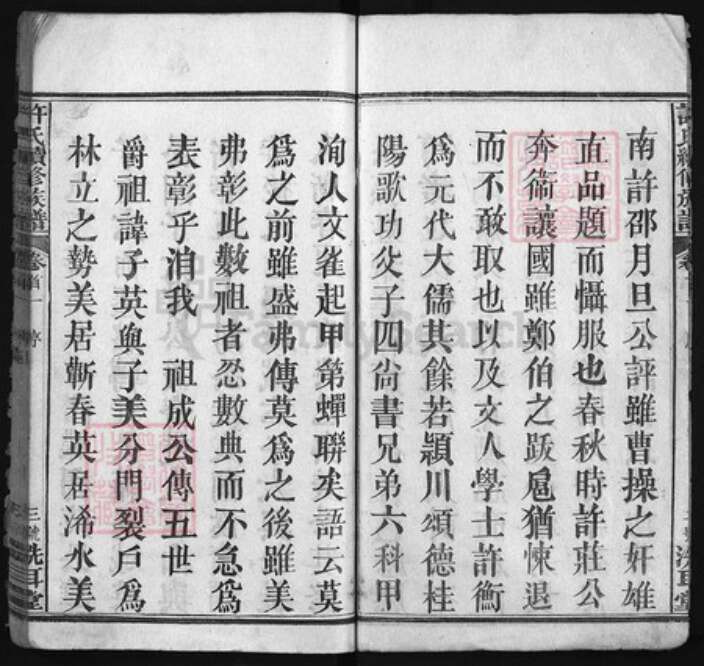 南許邵月旦公評雖曹操之奸雄
直品題而懾服也春秋時許莊公
奔衞讓國雖鄭伯之跋扈猶悚退
而不敢取也以及文人學士許衡
爲元代大儒其餘若潁川頌德桂
陽歌功父子四尙書兄弟六科甲
洵人文雀起甲第蟬聯矣語云莫
爲之前雖盛弗傳莫爲之後雖美
弗彰此數祖者忍數典而不急爲
表彰乎洎我 祖成公傳五世
爵祖諱子英與子美分門裂戶爲
林立之勢美居蘄春英居浠水美
許氏續修族譜 卷首一 序 三號 洗耳堂
FamilySearch